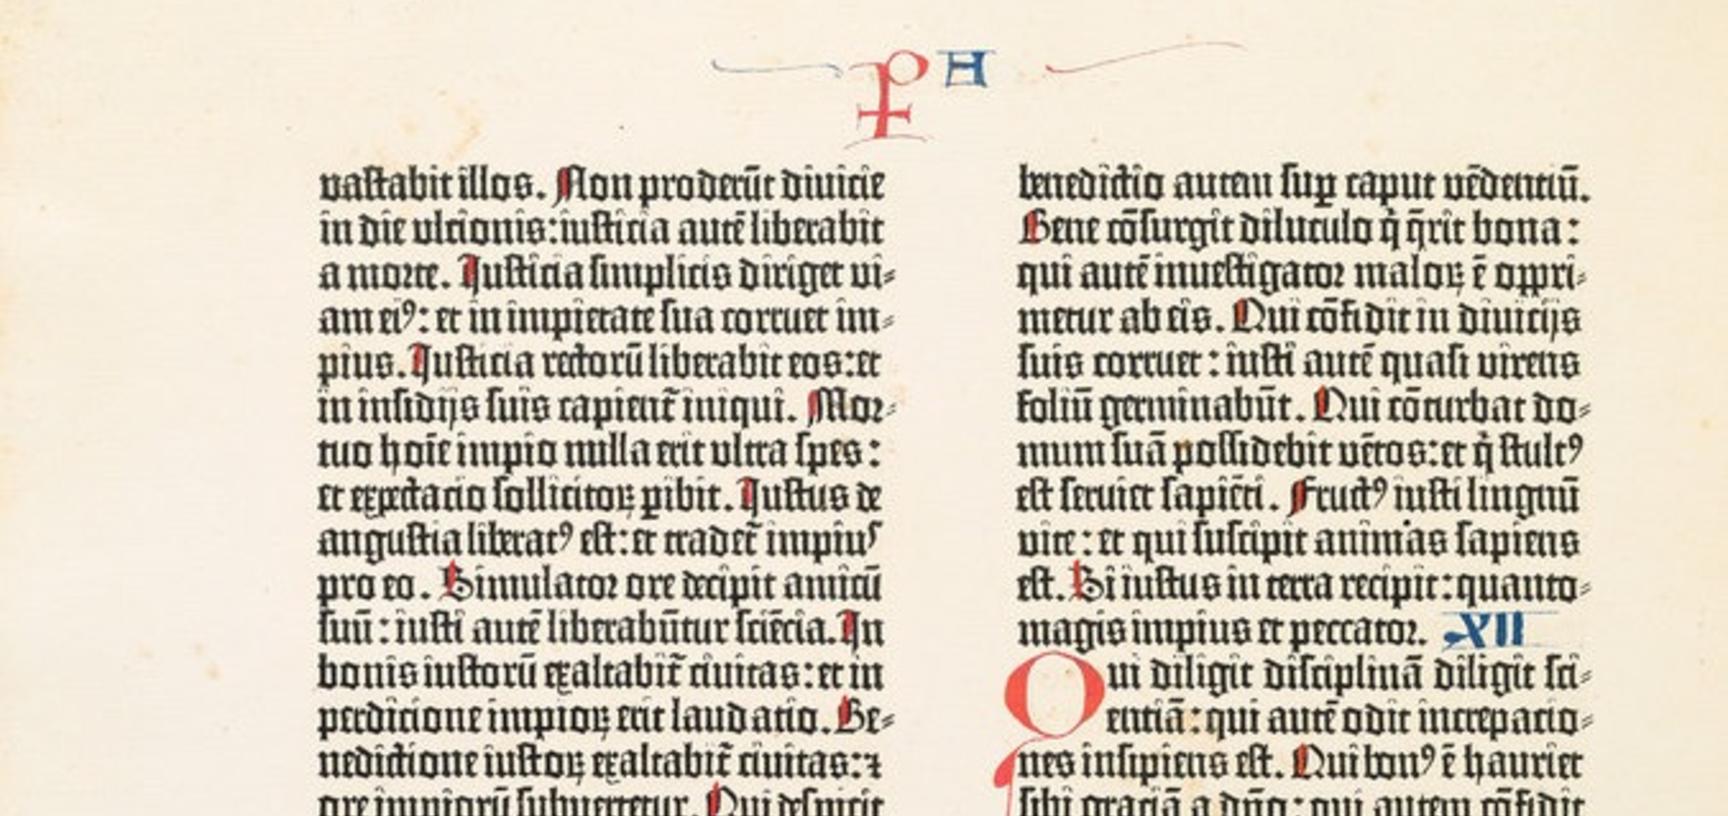 P H
vastabit illos. Non proderūt diuicie
in die vlcionis: iusticia autē liberabit
a morte. Justicia simplicis diriget vi⸗
am eiꝰ: et in impietate sua corruet im⸗
pius. Justicia rectorū liberabit eos: et
in insidijs suis capient̄ iniqui. Mor⸗
tuo hoīe impio nulla erit vltra spes:
et expectacio sollicitoꝝ ꝑibit. Justus de
angustia liberatꝰ est: et tradet̄ impius
pro eo. Simulator ore decipit amicū
suū: iusti autē liberabūtur sciēcia. In
bonis iustorū exaltabit̄ ciuitas: et in
perdicione impioꝝ erit laudatio. Be⸗
nedictione iustoꝝ exaltabit̄ ciuitas: ⁊
ore impiorū subuertetur. Qui despicit
benedictio autem suꝑ caput vēdentiū.
Bene cōsurgit diluculo q̇ q̄rit bona:
qui autē inuestigator maloꝝ ē oppri⸗
metur ab eis. Qui cōfidit in diuicijs
suis corruet: iusti autē quasi virens
foliū germinabūt. Qui cōturbat do⸗
mum suā possidebit vētos: et q̇ stultꝰ
est seruiet sapiēti. Fructꝰ iusti lingnū
vite: et qui suscipit animas sapiens
est. Si iustus in terra recipit: quanto⸗
magis impius et peccator. XII
Qui diligit disciplinā diligit sci⸗
entiā: qui autē odit increpatio⸗
nes insipiens est. Qui bonꝰ ē hauriet
sibi graciā a dn̄o: qui autem cōfidit